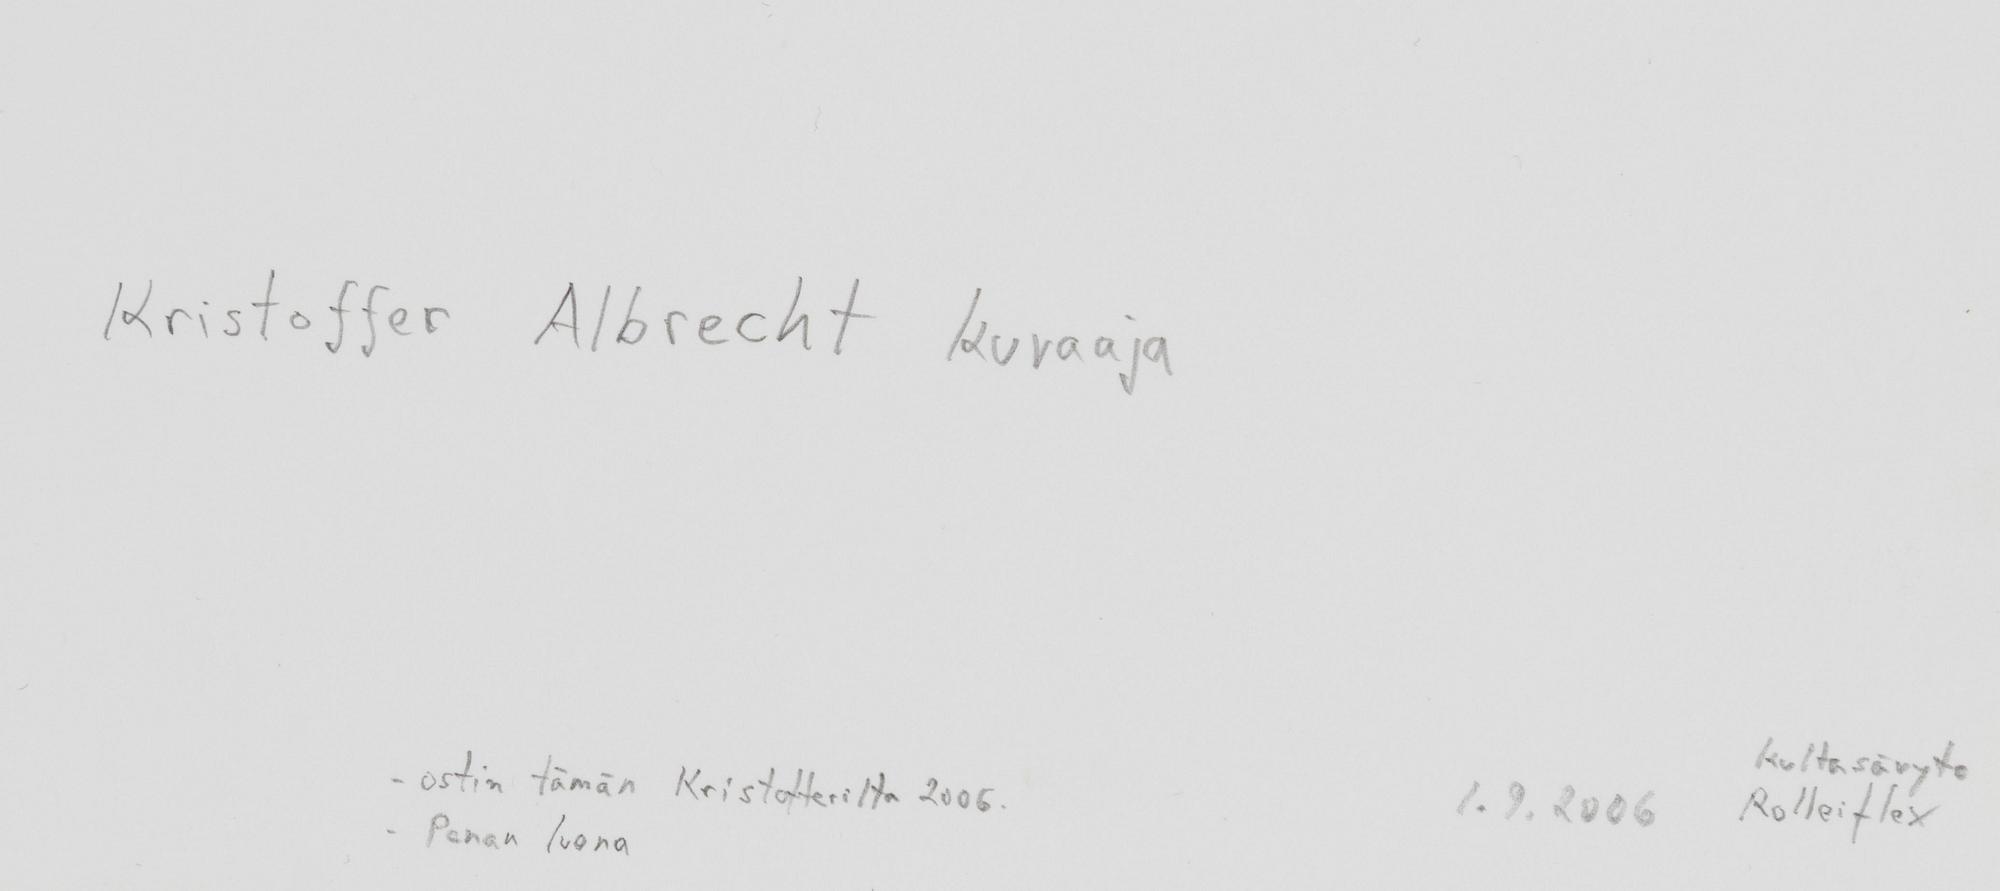 Kristoffer Albrecht kuvaaja
- ostin tämän Kristofferilta 2006.
- Penan luona
1.9.2006
kultasävyte
Rolleiflex